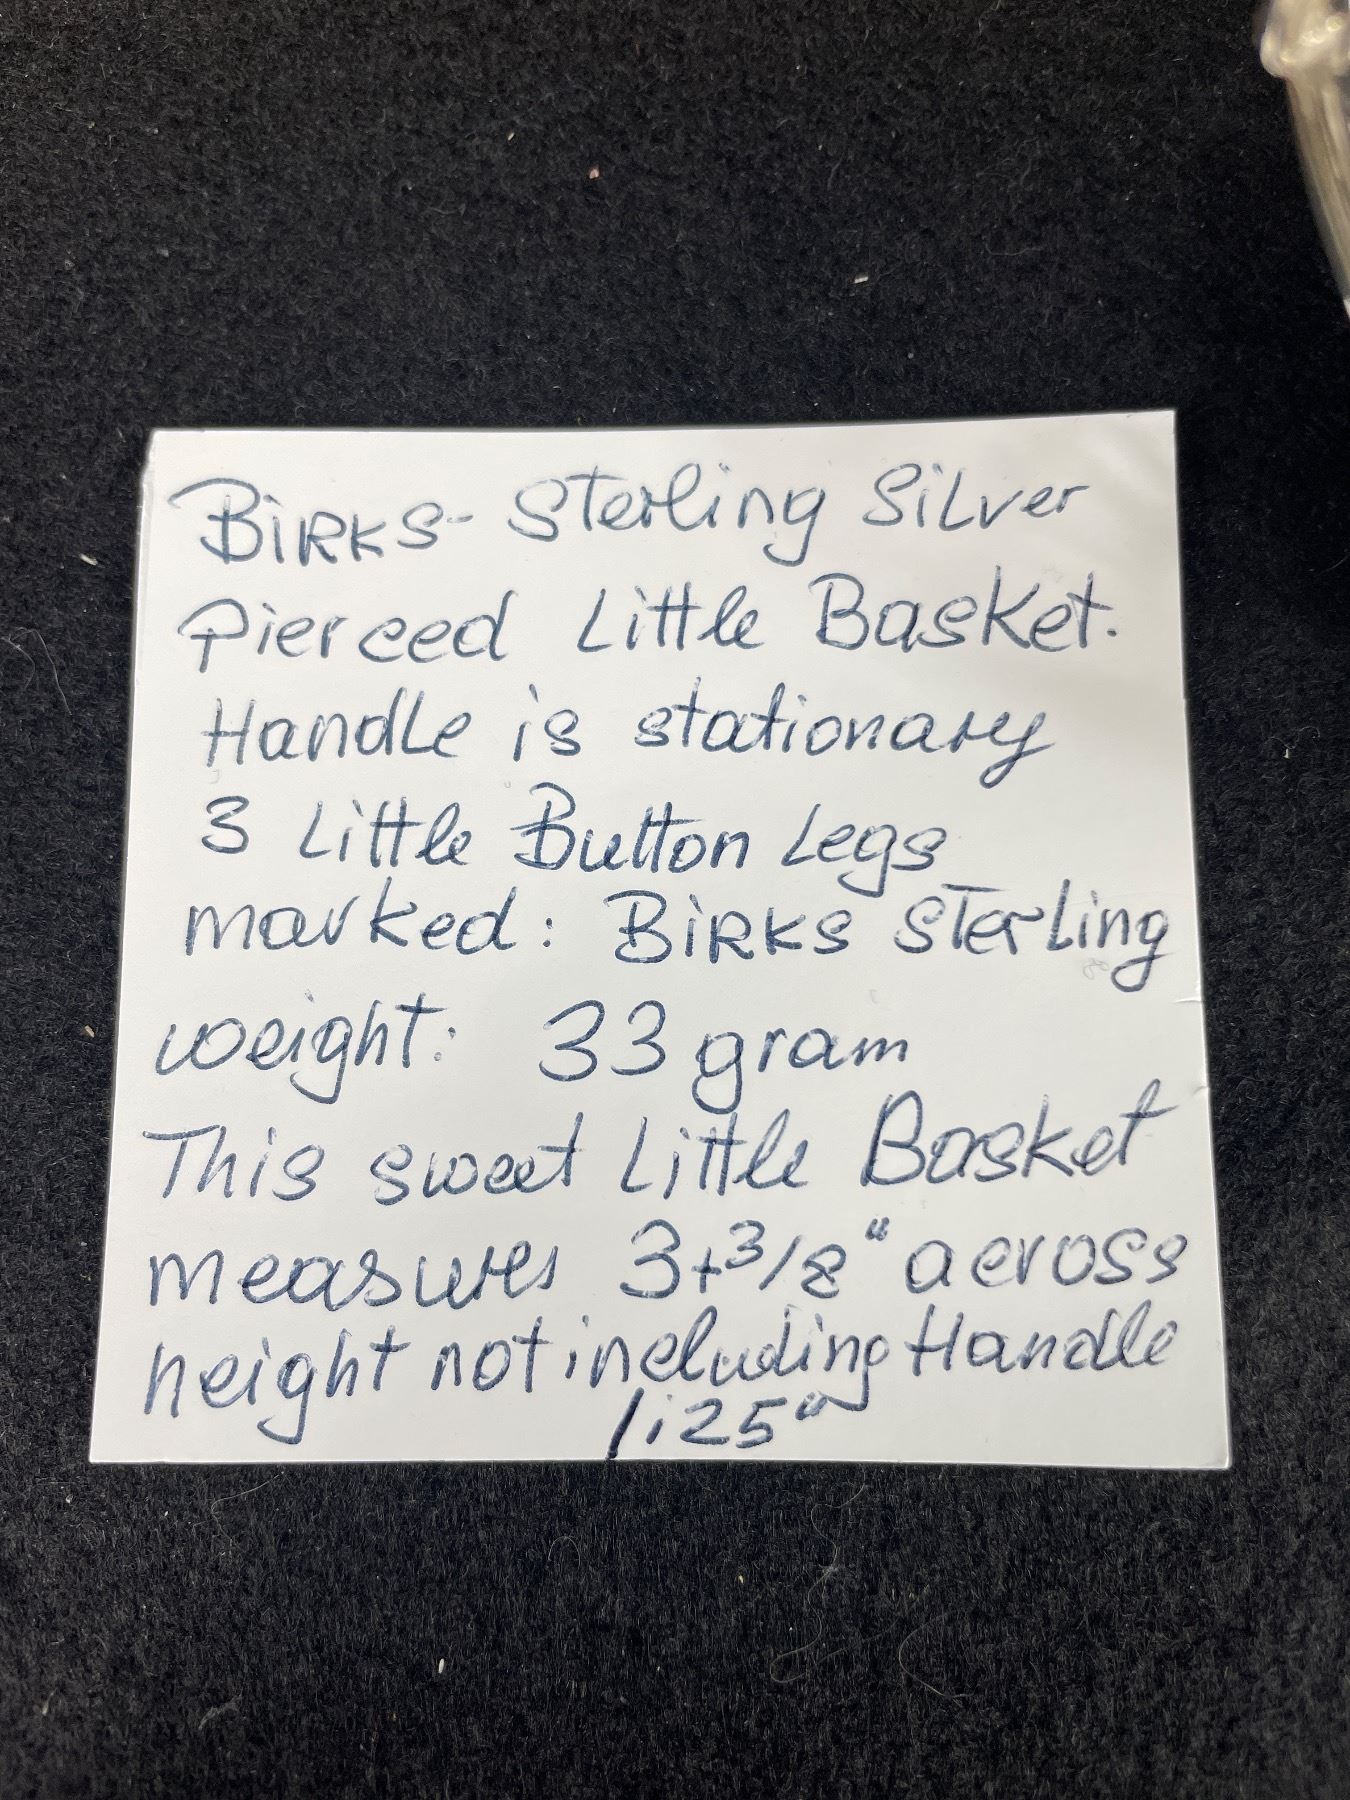 BiRKS - Sterling SiLver
Pierced Little Basket.
Handle is stationary
3 Little Button Legs
marked: BiRKS Sterling
weight: 33 gram
This sweet Little Basket
measures 3+3/8" across
height not including Handle
1.25"